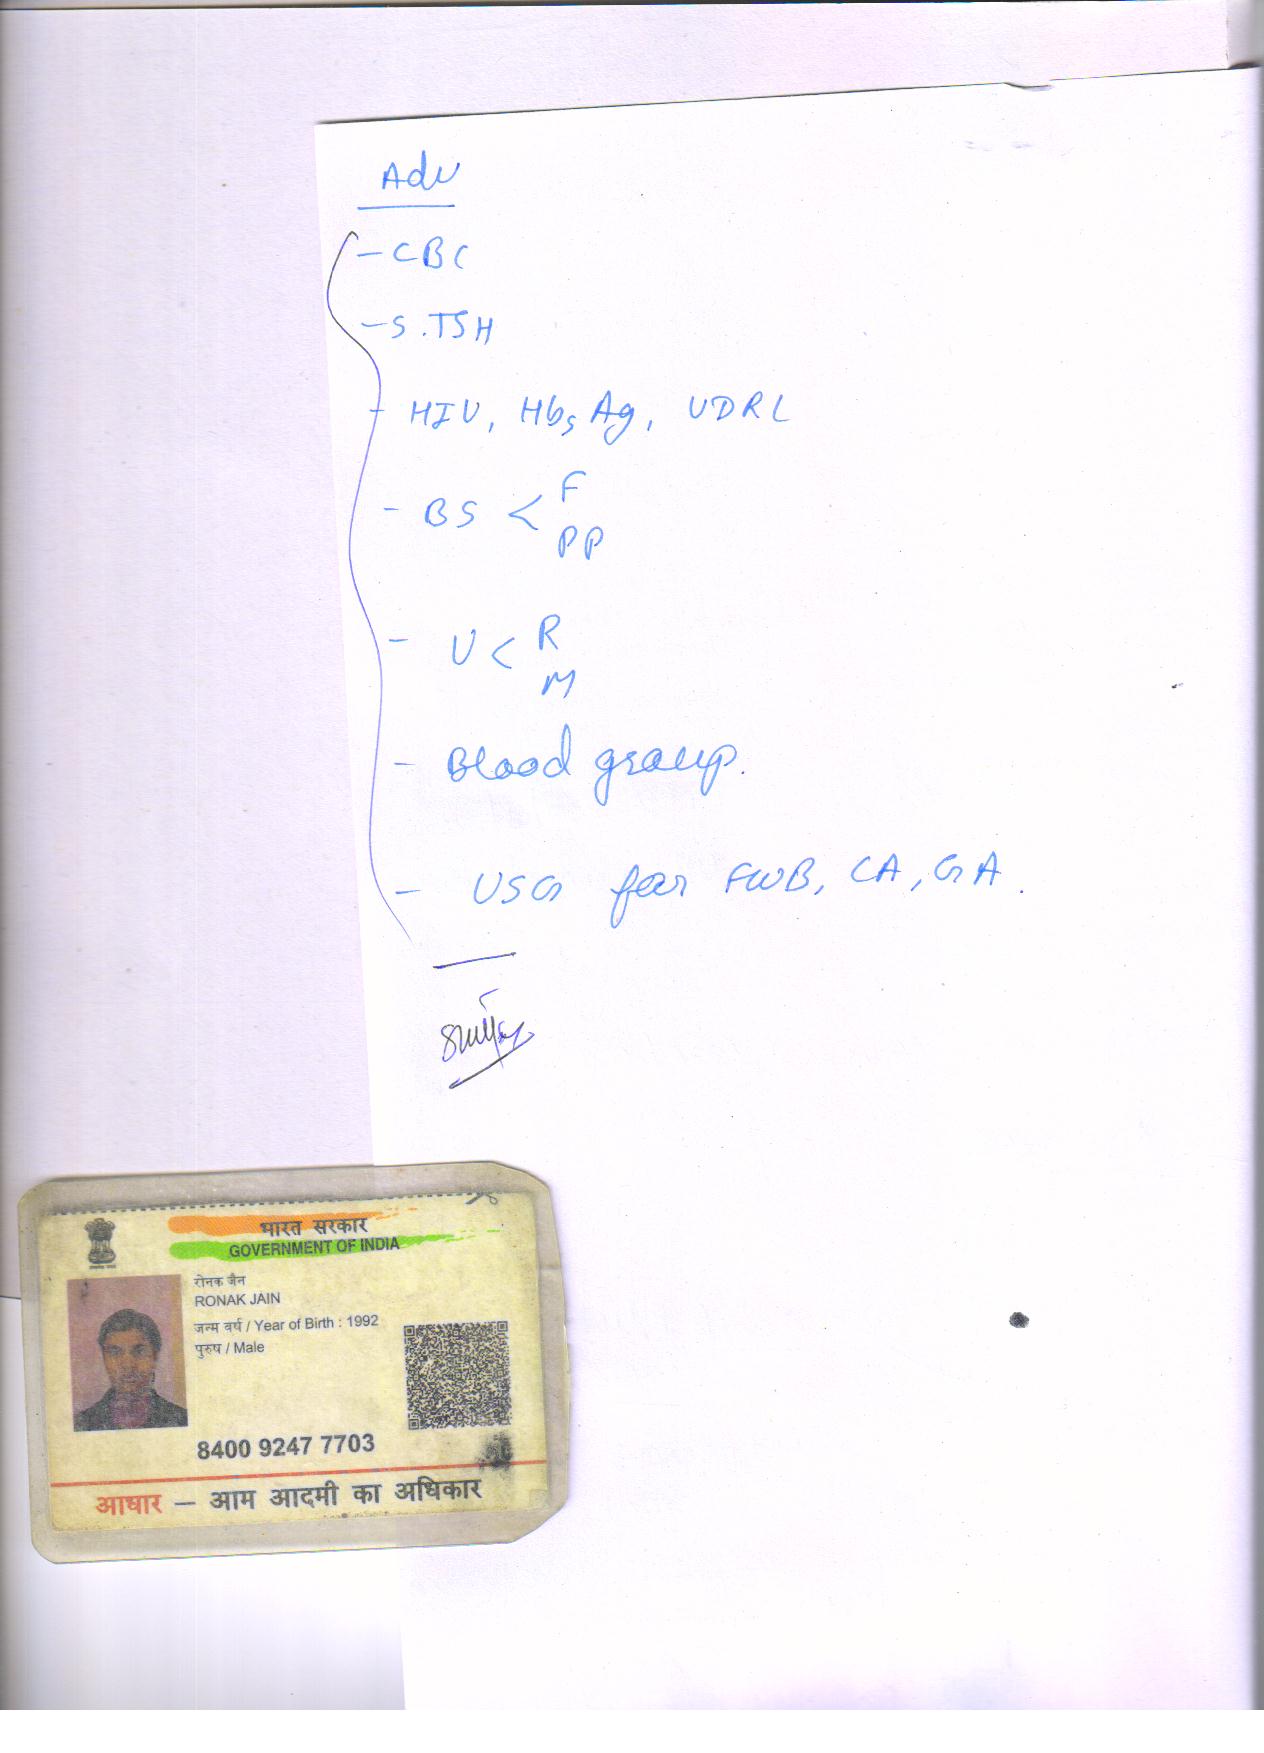 Adv
- CBC
- S.TSH
- HIV, HbsAg, VDRL
- BS < F
PP
- U < R
M
- Blood group.
- USG for FWB, CA, GA.
भारत सरकार
GOVERNMENT OF INDIA
रोनक जैन
RONAK JAIN
जन्म वर्ष / Year of Birth : 1992
पुरुष / Male
8400 9247 7703
आधार – आम आदमी का अधिकार